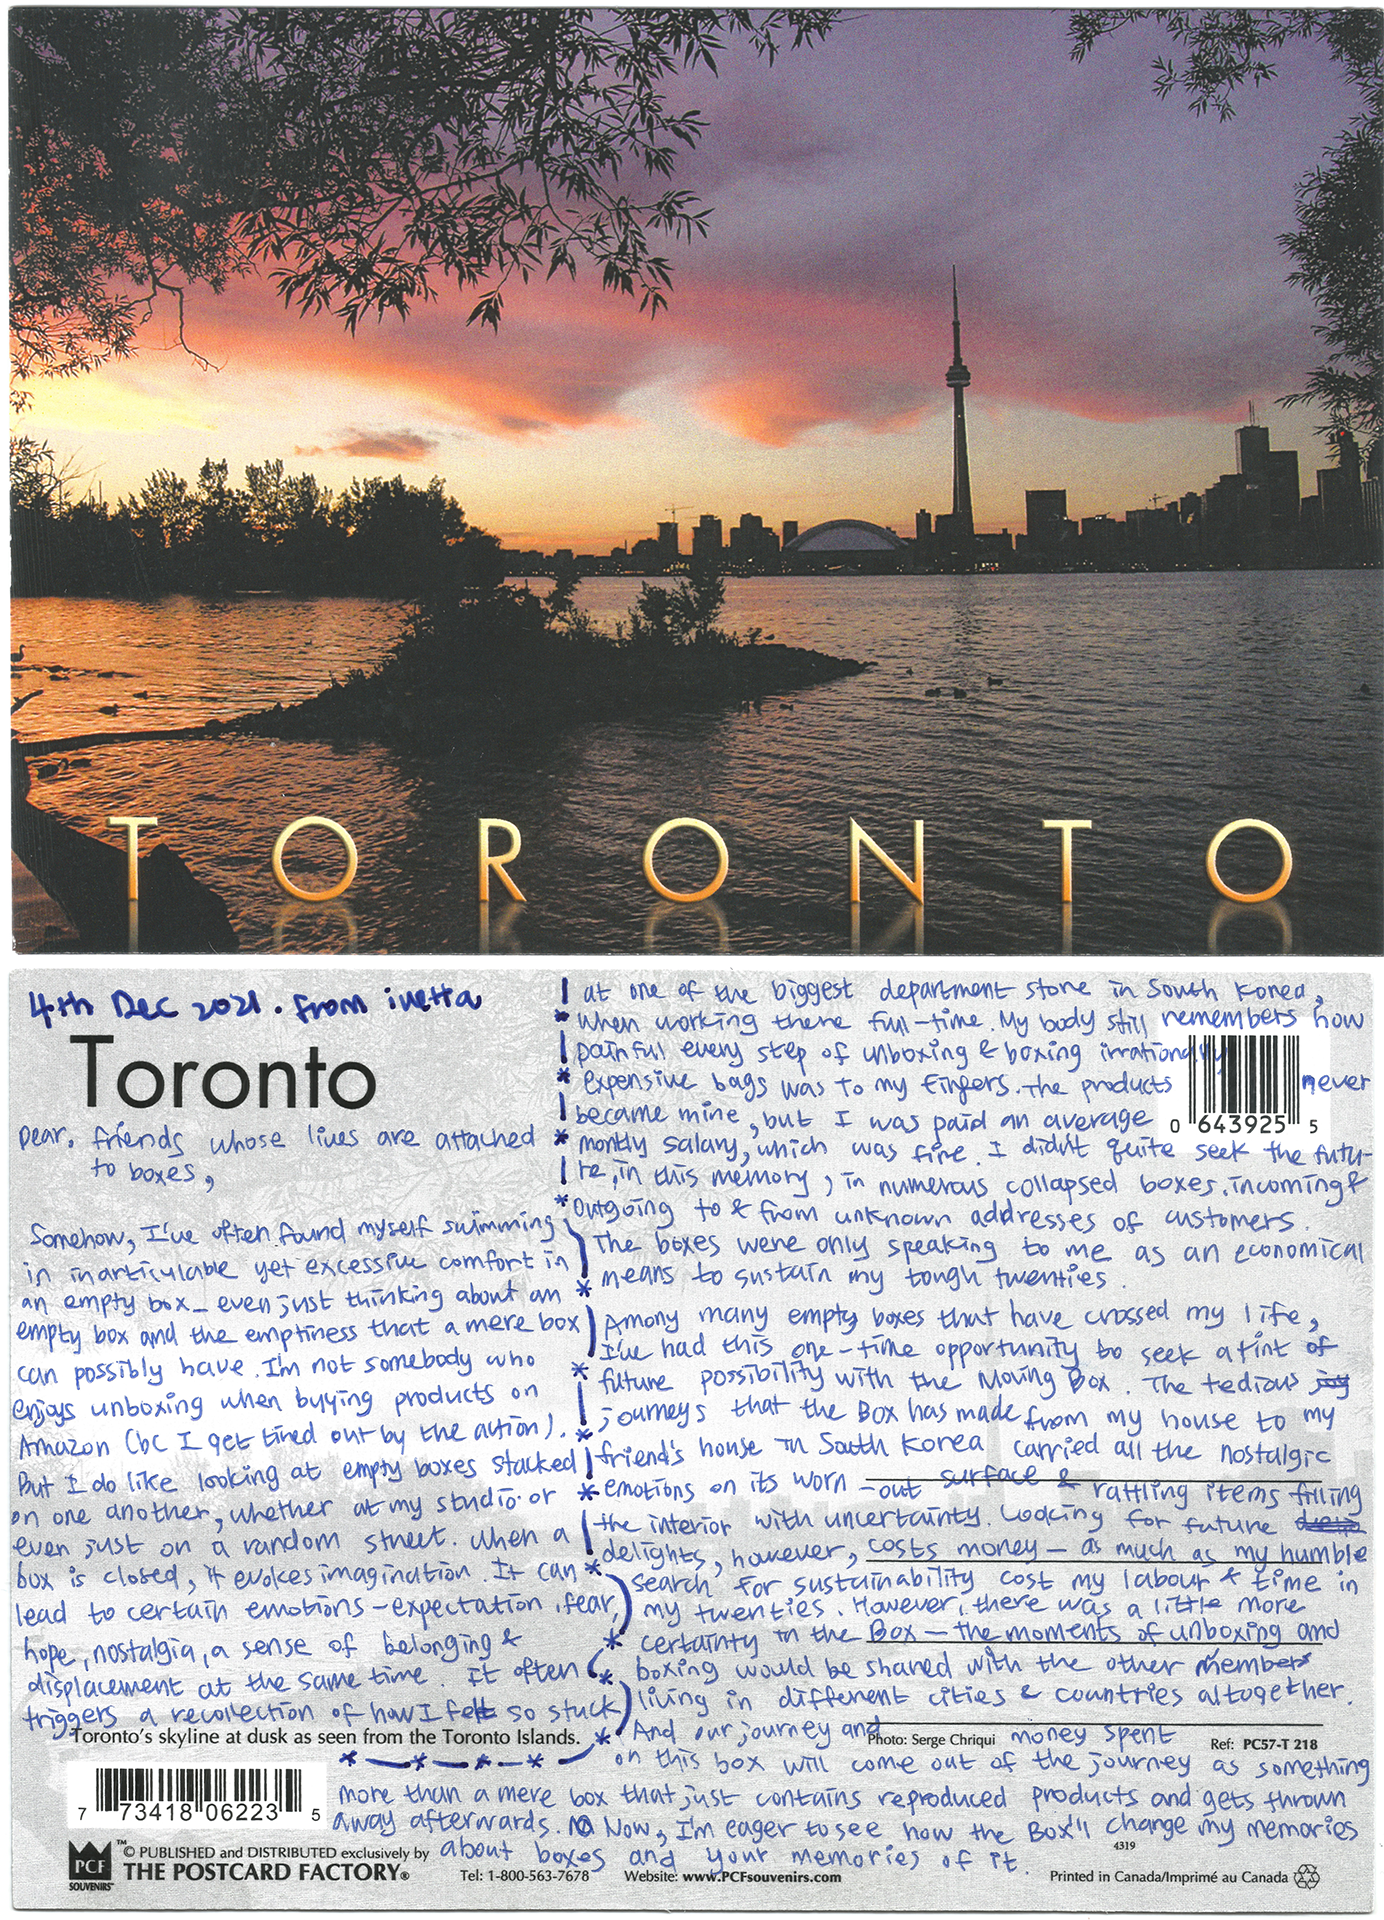 TORONTO
4th Dec 2021. from inetta
Toronto
Dear. friends whose lives are attached
to boxes,
Somehow, I've often found myself swimming
in inarticulable yet excessive comfort in
an empty box - even just thinking about an
empty box and the emptiness that a mere box
can possibly have. I'm not somebody who
enjoys unboxing when buying products on
Amazon (bc I get tired out by the action).
But I do like looking at empty boxes stacked
on one another, whether at my studio or
even just on a random street. When a
box is closed, it evokes imagination. It can
lead to certain emotions - expectation, fear,
hope, nostalgia, a sense of belonging &
displacement at the same time. It often
triggers a recollection of how I felt so stuck
at one of the biggest department store in South Korea,
when working there full-time. My body still remembers how
painful every step of unboxing & boxing irrationally
expensive bags was to my fingers. The products never
became mine, but I was paid an average
montly salary, which was fine. I didn't quite seek the futu-
re, in this memory, in numerous collapsed boxes, incoming &
outgoing to & from unknown addresses of customers.
The boxes were only speaking to me as an economical
means to sustain my tough twenties.
Among many empty boxes that have crossed my life,
I've had this one-time opportunity to seek a tint of
future possibility with the Moving Box. The tedious
journeys that the Box has made from my house to my
friend's house in South Korea carried all the nostalgic
emotions on its worn-out surface & rattling items filling
the interior with uncertainty. Looking for future
delights, however, costs money - as much as my humble
search for sustainability cost my labour & time in
my twenties. However, there was a little more
certainty in the Box - the moments of unboxing and
boxing would be shared with the other members
living in different cities & countries altogether.
And our journey and money spent
on this box will come out of the journey as something
more than a mere box that just contains reproduced products and gets thrown
away afterwards. Now, I'm eager to see how the Box'll change my memories
about boxes and your memories of it.
0 643925 5
Toronto's skyline at dusk as seen from the Toronto Islands.
Photo: Serge Chriqui
Ref: PC57-T 218
7 73418 06223 5
4319
PCF
SOUVENIRS™
™ © PUBLISHED and DISTRIBUTED exclusively by
THE POSTCARD FACTORY®
Tel: 1-800-563-7678
Website: www.PCFsouvenirs.com
Printed in Canada/Imprimé au Canada